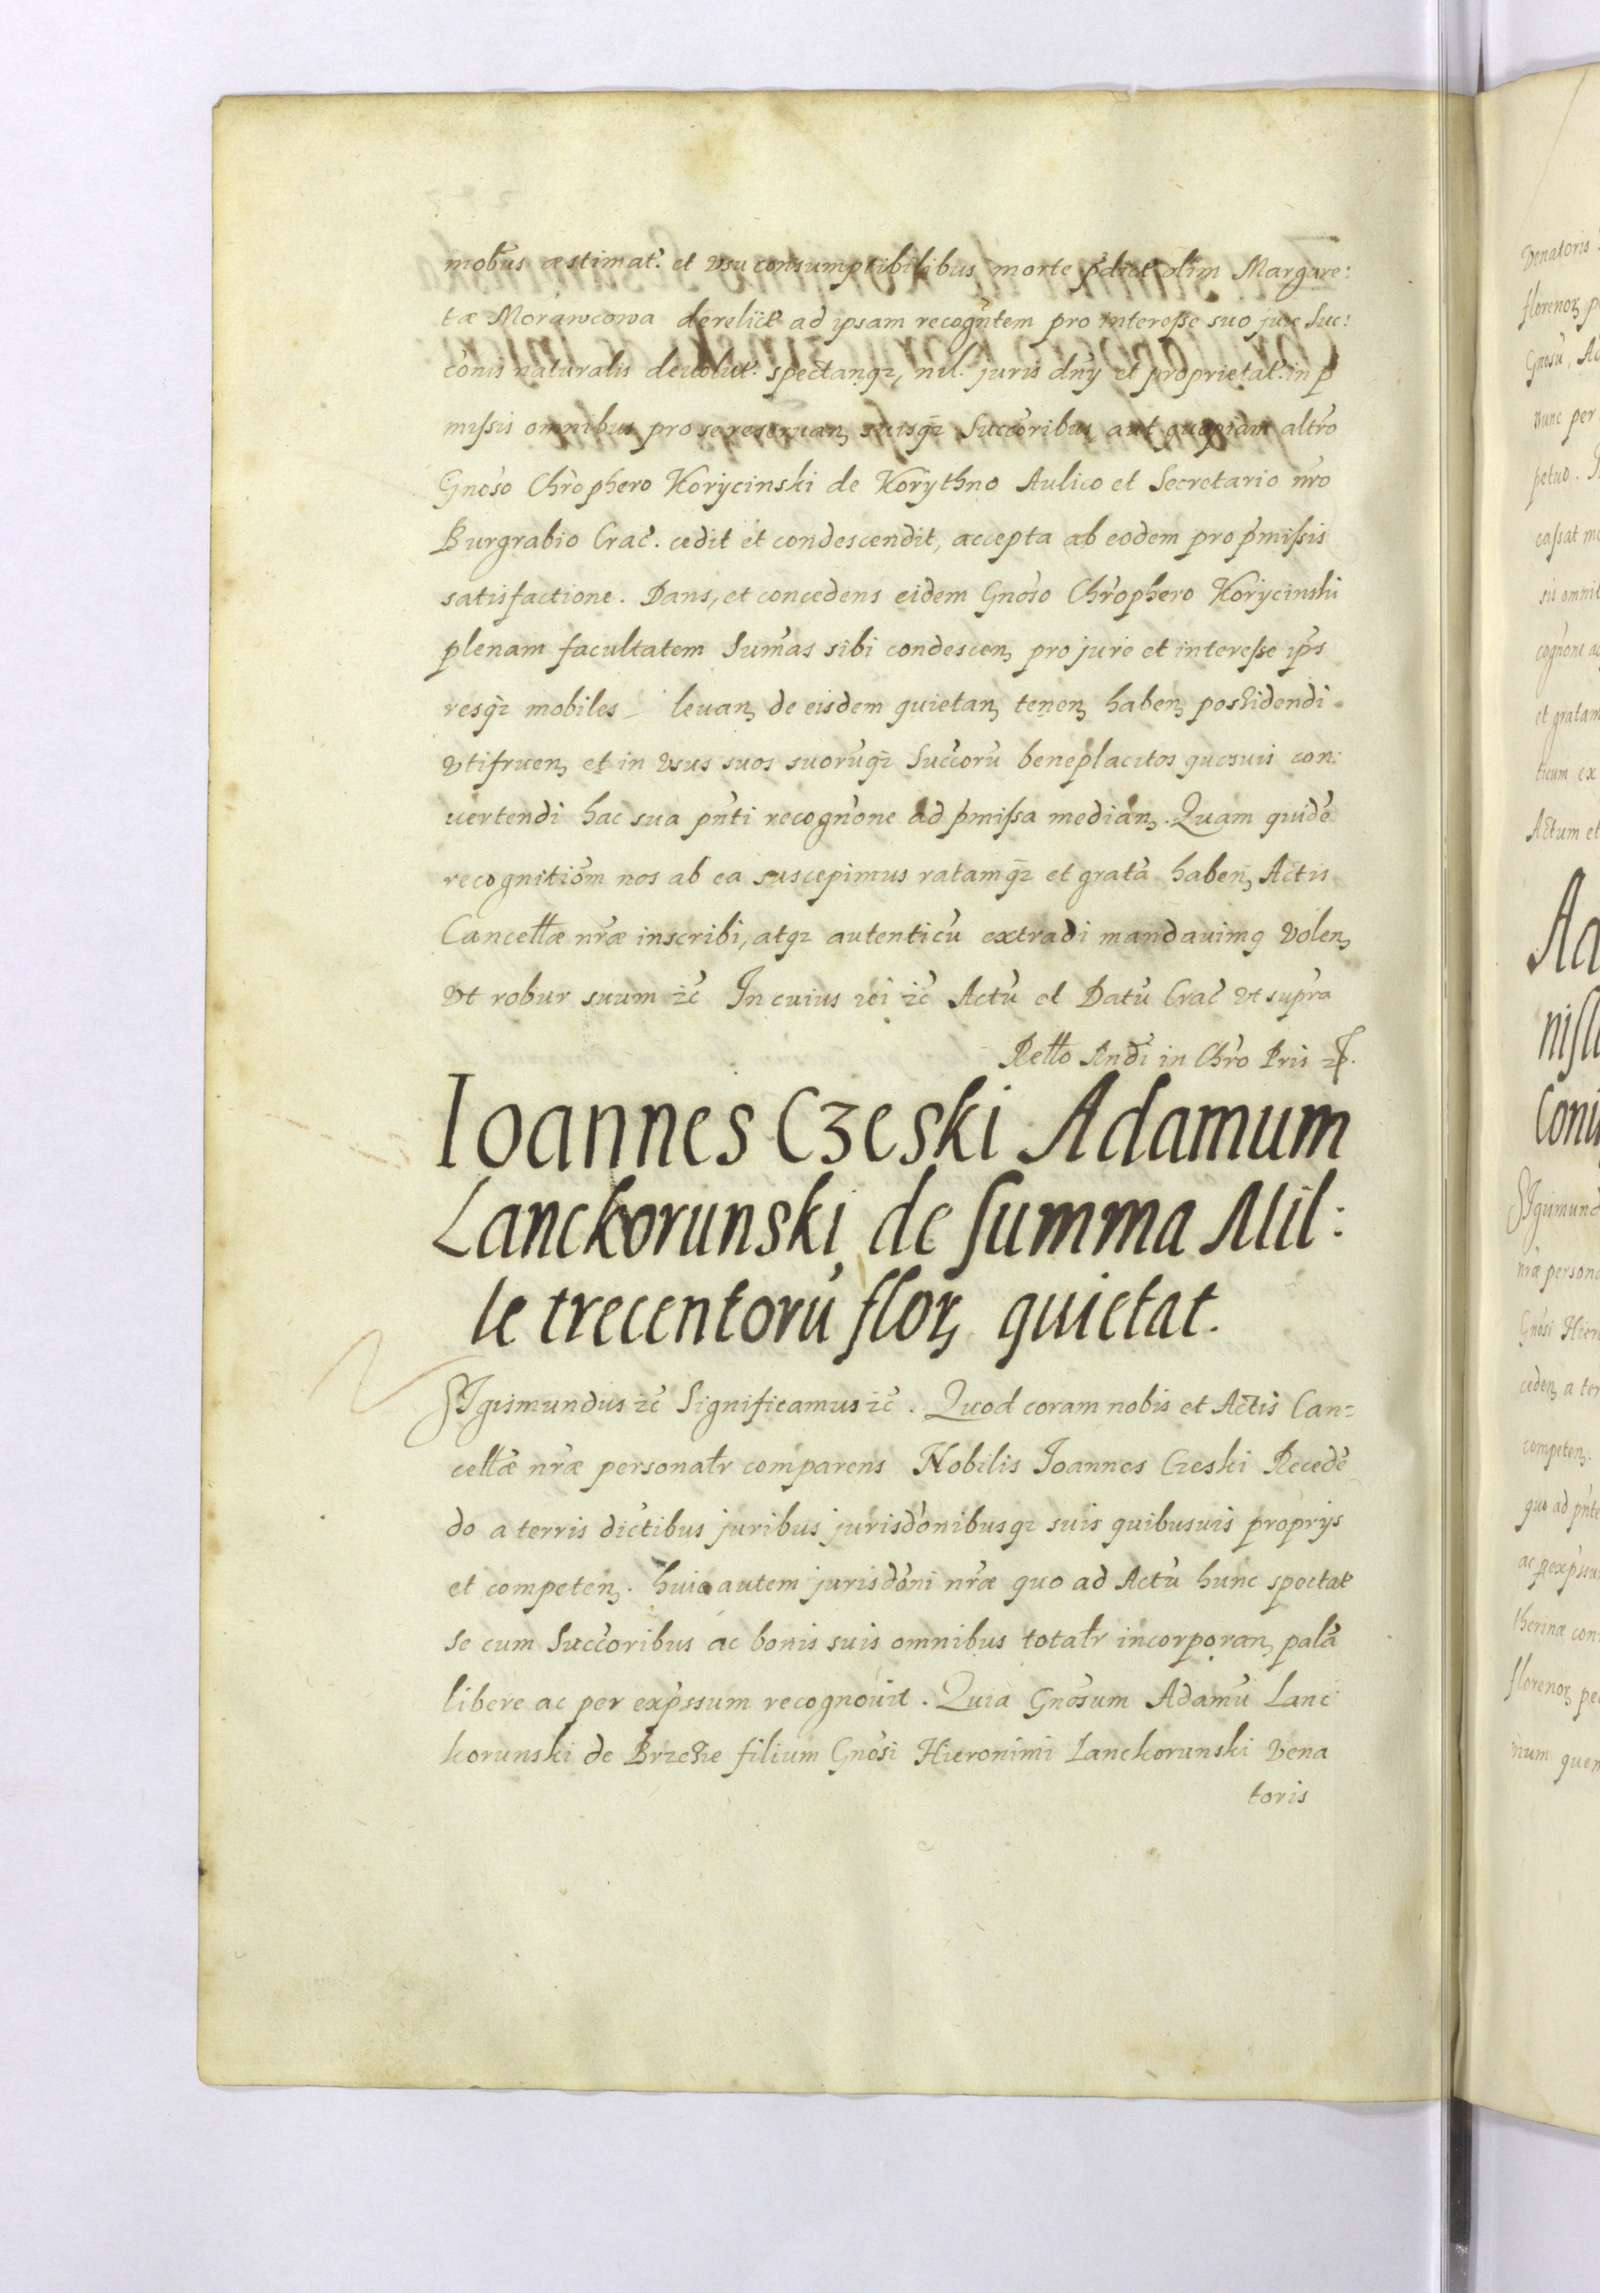 mobus æstimat. et vsu consumptibilibus morte pdict olim Margare:
tæ Morawcowa derelict ad ipsam recogntem pro interesse suo jure Suc:
conis naturalis deuolut. spectanqz, nil. juris dny et proprietat. in p
missis omnibus pro se reseruanȝ suisqz Succoribus aut quopiam altro
Gnoso Chrophero Korycinski de Korythno Aulico et Secretario nro
Burgrabio Crac. cedit et condescendit, accepta ab eodem pro pmissis
satisfactione. Dans, et concedens eidem Gnoso Chrophero Korycinski
plenam facultatem Sumas sibi condescenȝ pro jure et interesse ips
resqz mobiles leuanȝ de eisdem quietanȝ tenenȝ habenȝ possidendi
vtifruenȝ et in vsus suos suorūqz Succorū beneplacitos quosuis con:
uertendi hac sua pnti recognone ad pmissa medianȝ. Quam quidē
recognitiom nos ab ea suscepimus ratamqz et gratā habenȝ Actis
Cancellæ nræ inscribi, atqz autenticū extradi mandauimq volenȝ
vt robur suum zc̄ In cuius rei zc̄ Actū et Datū Crac̄ vt supra
Rello Andi in Chro Pris
Ioannes Czeski Adamum
Lanckorunski de summa Mil:
le trecentorū florȝ quietat.
SIgismundus zc̄ Significamus zc̄. Quod coram nobis et Actis Can=
cellæ nræ personalr comparens Nobilis Joannes Czeski Recedē
do a terris dictibus juribus jurisdonibusqz suis quibusuis proprys
et competenȝ. huic autem jurisdoni nræ quo ad Actū hunc spectat
se cum Succoribus ac bonis suis omnibus totalr incorporanȝ palā
libere ac per expssum recognouit. Quia Gnosum Adamū Lanc
korunski de Brzezie filium Gnosi Hieronimi Lanckorunski Vena
toris